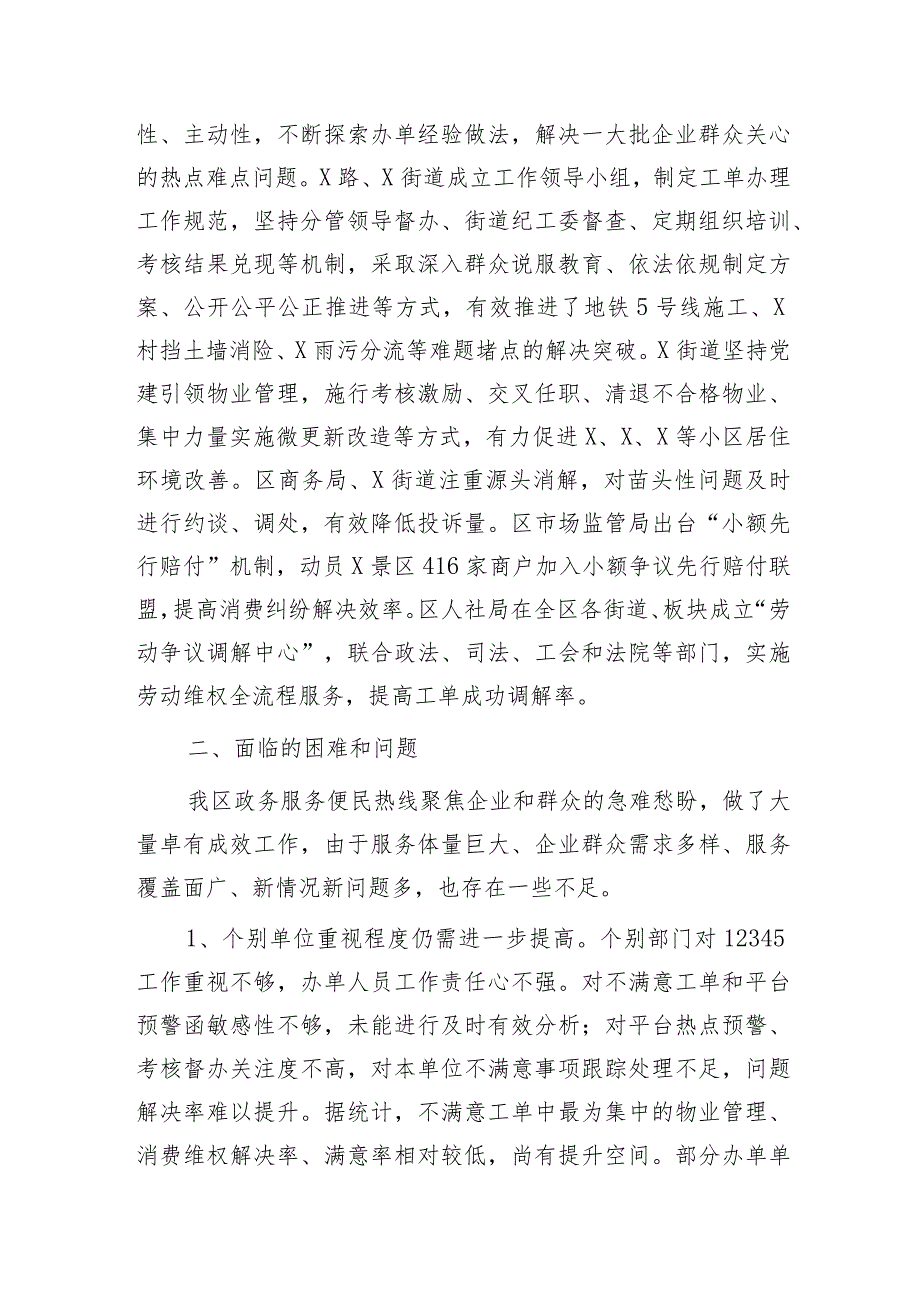 性、主动性，不断探索办单经验做法，解决一大批企业群众关心
的热点难点问题。X 路、X 街道成立工作领导小组，制定工单办理
工作规范，坚持分管领导督办、街道纪工委督查、定期组织培训、
考核结果兑现等机制，采取深入群众说服教育、依法依规制定方
案、公开公平公正推进等方式，有效推进了地铁 5 号线施工、X
村挡土墙消险、X 雨污分流等难题堵点的解决突破。X 街道坚持党
建引领物业管理，施行考核激励、交叉任职、清退不合格物业、
集中力量实施微更新改造等方式，有力促进 X、X、X 等小区居住
环境改善。区商务局、X 街道注重源头消解，对苗头性问题及时
进行约谈、调处，有效降低投诉量。区市场监管局出台“小额先
行赔付”机制，动员 X 景区 416 家商户加入小额争议先行赔付联
盟，提高消费纠纷解决效率。区人社局在全区各街道、板块成立“劳
动争议调解中心”，联合政法、司法、工会和法院等部门，实施
劳动维权全流程服务，提高工单成功调解率。
二、面临的困难和问题
我区政务服务便民热线聚焦企业和群众的急难愁盼，做了大
量卓有成效工作，由于服务体量巨大、企业群众需求多样、服务
覆盖面广、新情况新问题多，也存在一些不足。
1、个别单位重视程度仍需进一步提高。个别部门对 12345
工作重视不够，办单人员工作责任心不强。对不满意工单和平台
预警函敏感性不够，未能进行及时有效分析；对平台热点预警、
考核督办关注度不高，对本单位不满意事项跟踪处理不足，问题
解决率难以提升。据统计，不满意工单中最为集中的物业管理、
消费维权解决率、满意率相对较低，尚有提升空间。部分办单单